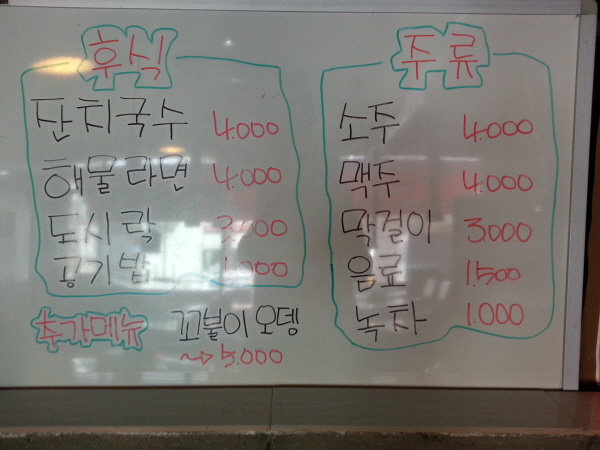 후식
잔치국수 4.000
해물라면 4.000
도시락
공기밥 1.000
추가메뉴 꼬불이오뎅
→ 5.000
주류
소주 4.000
맥주 4.000
막걸이 3.000
음료 1.500
녹차 1.000